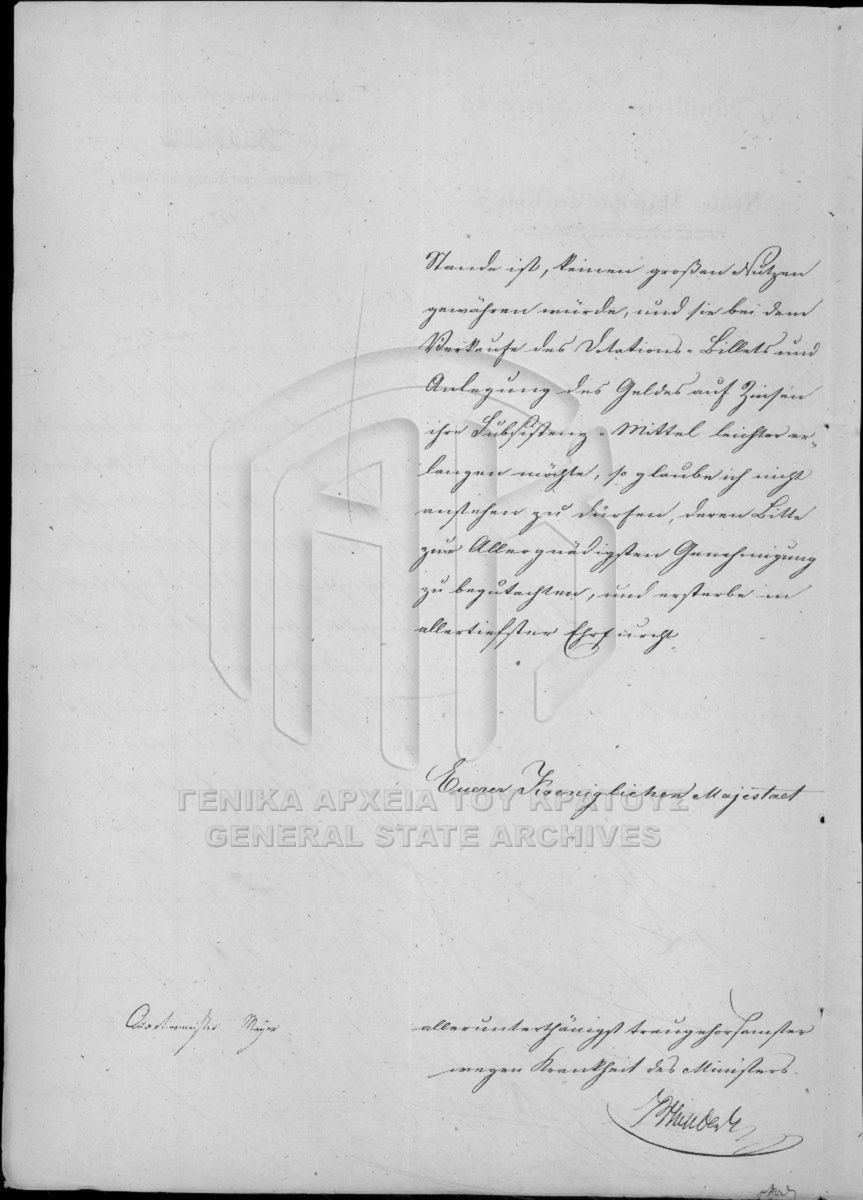 Stande ist, keinen großen Nutzen
gewähren würde, und sie bei dem
Verkaufe des Dotations-Billets und
Anlegung des Geldes auf Zinsen
ihre Subsistenz-Mittel leichter er-
langen möchte, so glaube ich nicht
anstehen zu dürfen, deren Bitte
zur Allergnädigsten Genehmigung
zu begutachten, und ersterbe in
allertiefster Ehrfurcht
Euerer Koeniglichen Majestaet
ΓΕΝΙΚΑ ΑΡΧΕΙΑ ΤΟΥ ΚΡΑΤΟΥΣ
GENERAL STATE ARCHIVES
Quartiermeister Mayer
allerunterthänigst treugehorsamster
wegen Krankheit des Ministers.